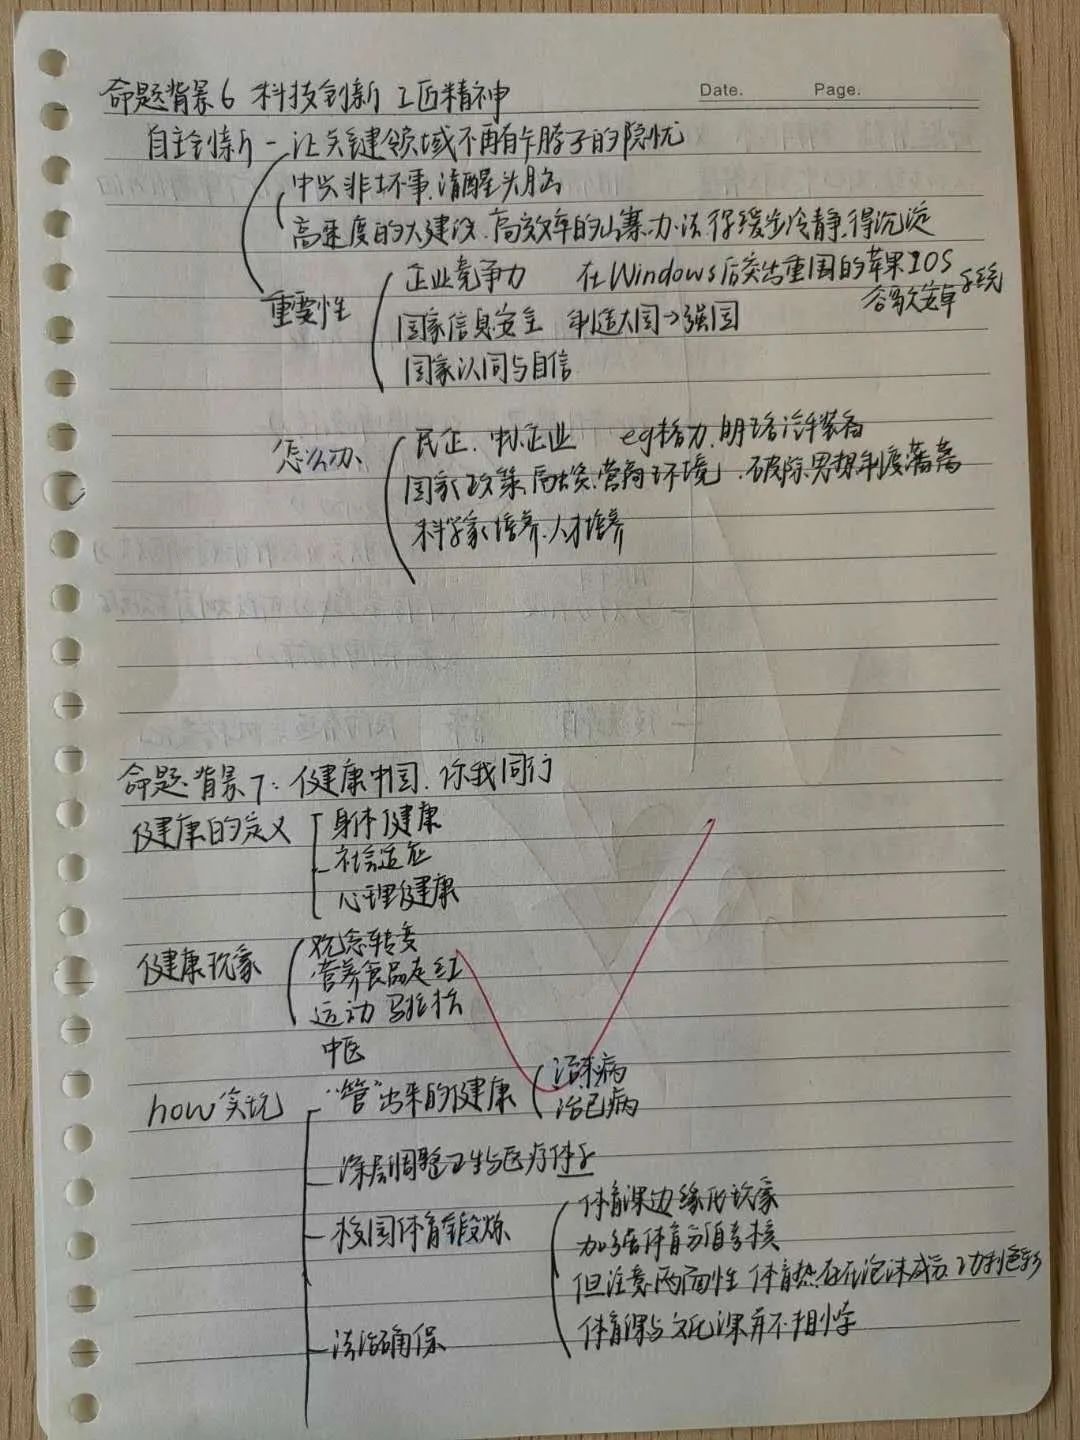 Date. Page.
命题背景6 科技创新 工匠精神
自主创新－让关键领域不再有卡脖子的隐忧
中兴非坏事,清醒头脑
高速度的大建设、高效率的山寨办法得缓步冷静,得沉淀
重要性
企业竞争力 在Windows后突出重围的苹果IOS
谷歌安卓系统
国家信息安全 制造大国→强国
国家认同与自信
怎么办
民企、中小企业 eg格力、明珞汽车装备
国家(政策、融资、营商环境)、破除思想制度藩篱
科学家培养、人才培养
命题背景7:健康中国,你我同行
健康的定义
身体健康
社会适应
心理健康
健康现象
观念转变
营养食品走红
运动 马拉松
中医
how实现
"管"出来的健康
治未病
治已病
深层调整卫生与医疗体系
校园体育锻炼
体育课边缘化现象
加强体育分值考核
但注意两面性 体育热存在泡沫成分、功利色彩
体育课与文化课并不相悖
法治确保